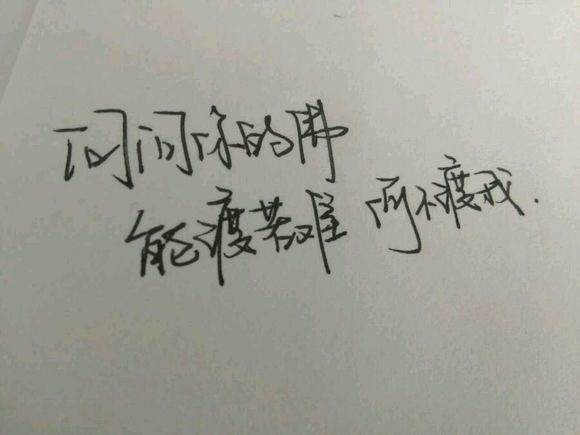 问问你的佛
能渡苦难 可不渡我.